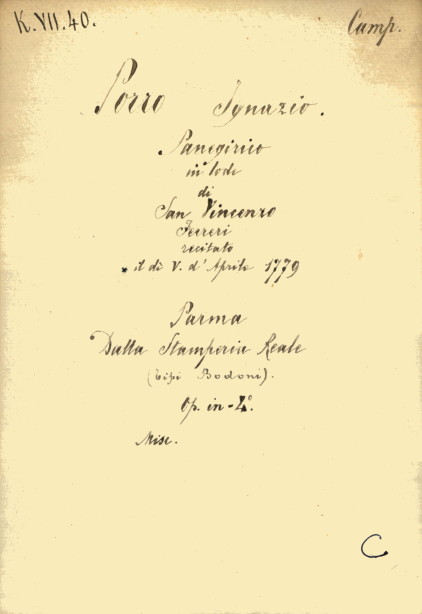 K.VII.40.
Camp.
Porro Ignazio.
Panegirico
in lode
di
San Vincenzo
Ferreri
recitato
il dì V. d'Aprile 1779
Parma
Dalla Stamperia Reale
(tipi Bodoni).
Op. in-4º.
Misc.
C